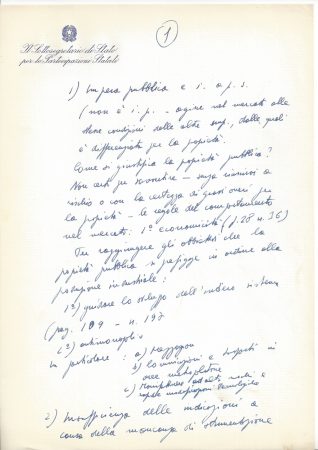 1
Il Sottosegretario di Stato
per le Partecipazioni Statali
1) Impresa pubblica e i. a p. s.
(non è i. p. - agire nel mercato alle
stesse condizioni delle altre imp., dalle quali
è differenziata per la proprietà.
Come si giustifica la proprietà pubblica?
Non certo per - senza rinunci a
rischio o con la certezza di per
la proprietà - le regole del comportamento
nel mercato: 1° economicità (p. 28 n. 36)
Per raggiungere gli obiettivi che la
proprietà pubblica si prefigge in ordine alla
posizione industriale:
1°) guidare lo sviluppo dell'intero sistema
(pag. 109 - n. 197
(2°) antimonopolio
in particolare: a) Mezzogiorno
b) e trasporti in
aree metropolitane
c) ad alti rischi e
rapide innovazioni tecnologiche
2) Insufficienza delle indicazioni a
causa della mancanza di strumentazione